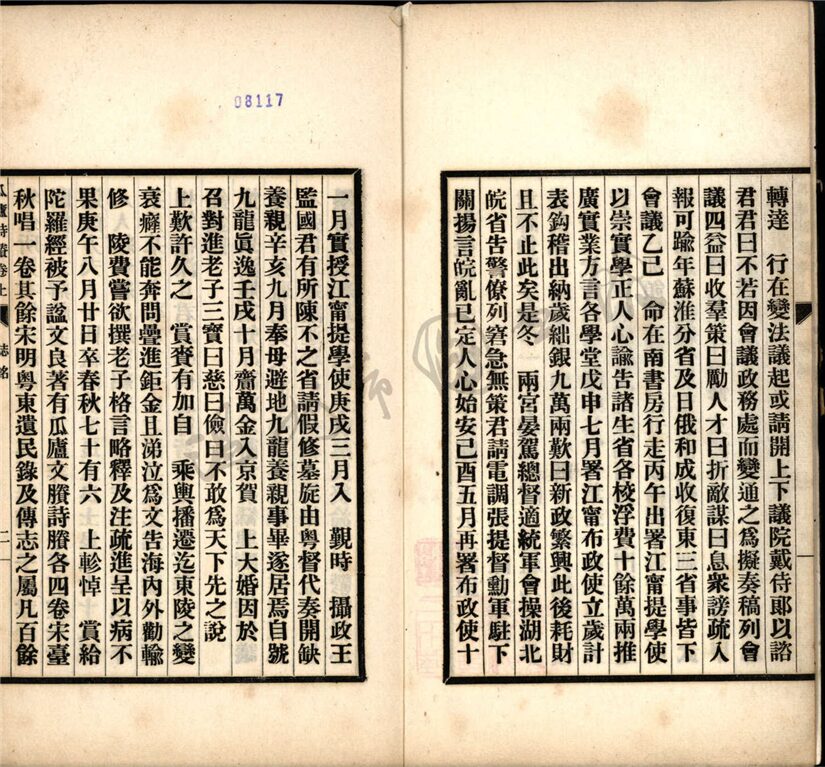 08117
轉達　行在變法議起或請開上下議院戴侍郎以諮
君君曰不若因會議政務處而變通之爲擬奏稿列會
議四益曰收羣策曰勵人才曰折敵謀曰息衆謗疏入
報可踰年蘇淮分省及日俄和成收復東三省事皆下
會議乙巳　命在南書房行走丙午出署江甯提學使
以崇實學正人心諭告諸生省各校浮費十餘萬兩推
廣實業方言各學堂戊申七月署江甯布政使立歲計
表鈎稽出納歲絀銀九萬兩歎曰新政繁興此後耗財
且不止此矣是冬　兩宮晏駕總督適統軍會操湖北
皖省告警僚列窘急無策君請電調張提督勳軍駐下
關揚言皖亂已定人心始安己酉五月再署布政使十
一月實授江甯提學使庚戌三月入　覲時　攝政王
監國君有所陳不之省請假修墓旋由粵督代奏開缺
養親辛亥九月奉母避地九龍養親事畢遂居焉自號
九龍眞逸壬戌十月齋萬金入京賀　上大婚因於
召對進老子三寶曰慈曰儉曰不敢爲天下先之說
上歎許久之　賞賚有加自　乘輿播遷迄東陵之變
衰癃不能奔問疊進鉅金且涕泣爲文告海內外勸輸
修　陵費嘗欲撰老子格言略釋及注疏進呈以病不
果庚午八月廿日卒春秋七十有六　上軫悼　賞給
陀羅經被予諡文良著有瓜廬文賸詩賸各四卷宋臺
秋唱一卷其餘宋明粵東遺民錄及傳志之屬凡百餘
瓜廬詩賸卷上　志銘　二